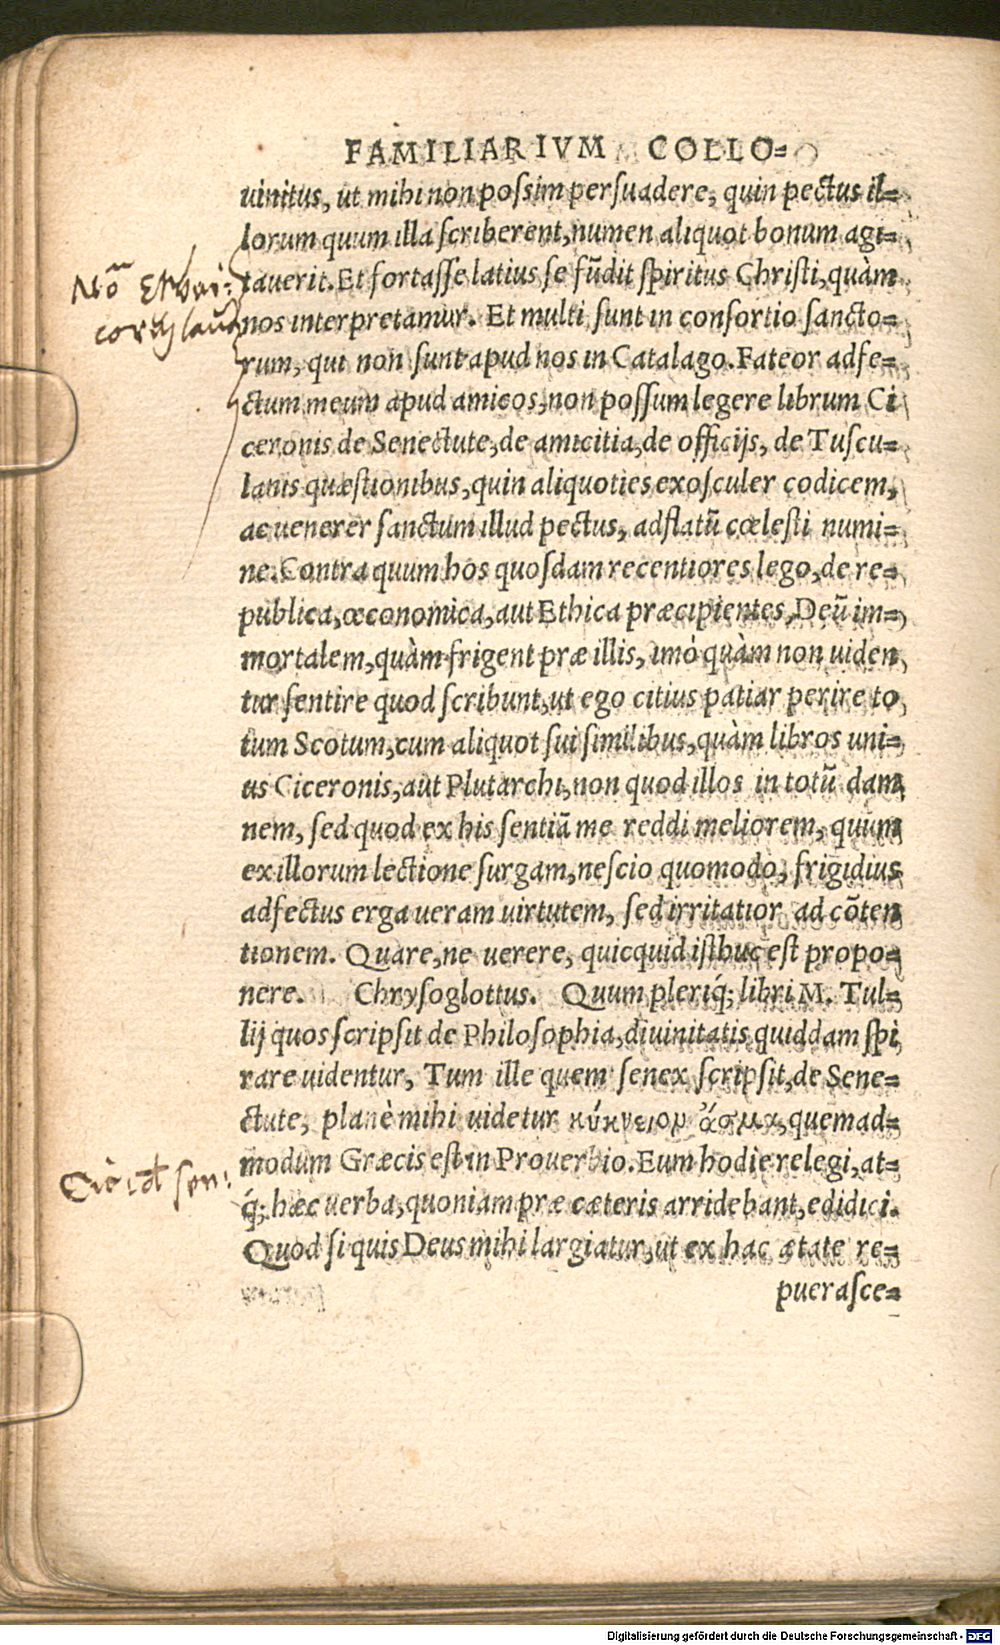 FAMILIARIVM COLLO=
uinitus, ut mihi non possim persuadere, quin pectus il=
lorum quum illa scriberent, numen aliquot bonum agi=
tauerit. Et fortasse latius se fūdit spiritus Christi, quàm
nos interpretamur. Et multi sunt in consortio sancto=
rum, qui non sunt apud nos in Catalago. Fateor adfe=
ctum meum apud amicos, non possum legere librum Ci
ceronis de Senectute, de amicitia, de officijs, de Tuscu=
lanis quæstionibus, quin aliquoties exosculer codicem,
ac uenerer sanctum illud pectus, adflatū cœlesti numi=
ne. Contra quum hos quosdam recentiores lego, de re=
publica, œconomica, aut Ethica præcipientes, Deū im=
mortalem, quàm frigent præ illis, imò quàm non uiden
tur sentire quod scribunt, ut ego citius patiar perire to
tum Scotum, cum aliquot sui similibus, quàm libros uni=
us Ciceronis, aut Plutarchi, non quod illos in totū dam
nem, sed quod ex his sentiā me reddi meliorem, quum
ex illorum lectione surgam, nescio quomodo, frigidius
adfectus erga ueram uirtutem, sed irritatior ad cōten
tionem. Quare, ne uerere, quicquid isthuc est propo=
nere. Chrysoglottus. Quum pleriq́; libri M. Tul=
lij quos scripsit de Philosophia, diuinitatis quiddam spi
rare uidentur, Tum ille quem senex scripsit, de Sene=
ctute, planè mihi uidetur κύκνειον ᾆσμα, quemad=
modum Græcis est in Prouerbio. Eum hodie relegi, at=
q́; hæc uerba, quoniam præ cæteris arridebant, edidici.
Quod si quis Deus mihi largiatur, ut ex hac ætate re=
puerasce=
Digitalisierung gefördert durch die Deutsche Forschungsgemeinschaft - DFG